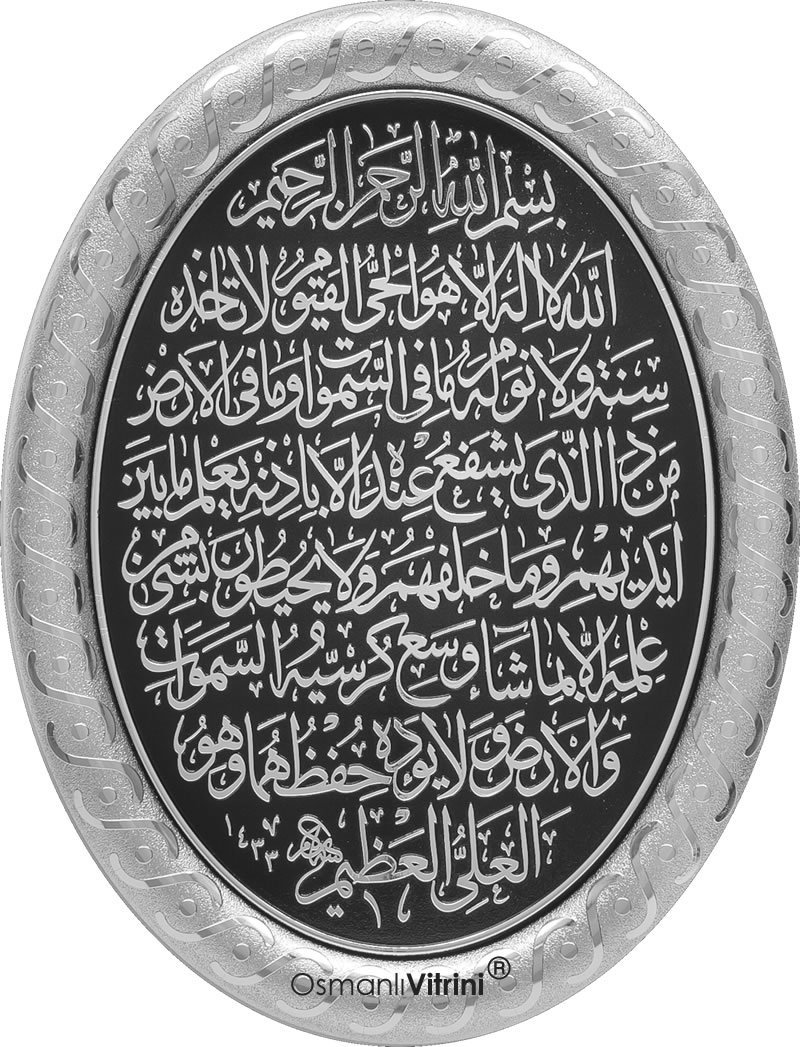 بسم الله الرحمن الرحيم
الله لا اله الا هو الحى القيوم لا تاخذه
سنة ولا نوم له ما فى السموات وما فى الارض
من ذا الذى يشفع عنده الا باذنه يعلم ما بين
ايديهم وما خلفهم ولا يحيطون بشىء من
علمه الا بما شاء وسع كرسيه السموات
والارض ولا يؤده حفظهما وهو
العلى العظيم
١٤٣٣
OsmanlıVitrini®